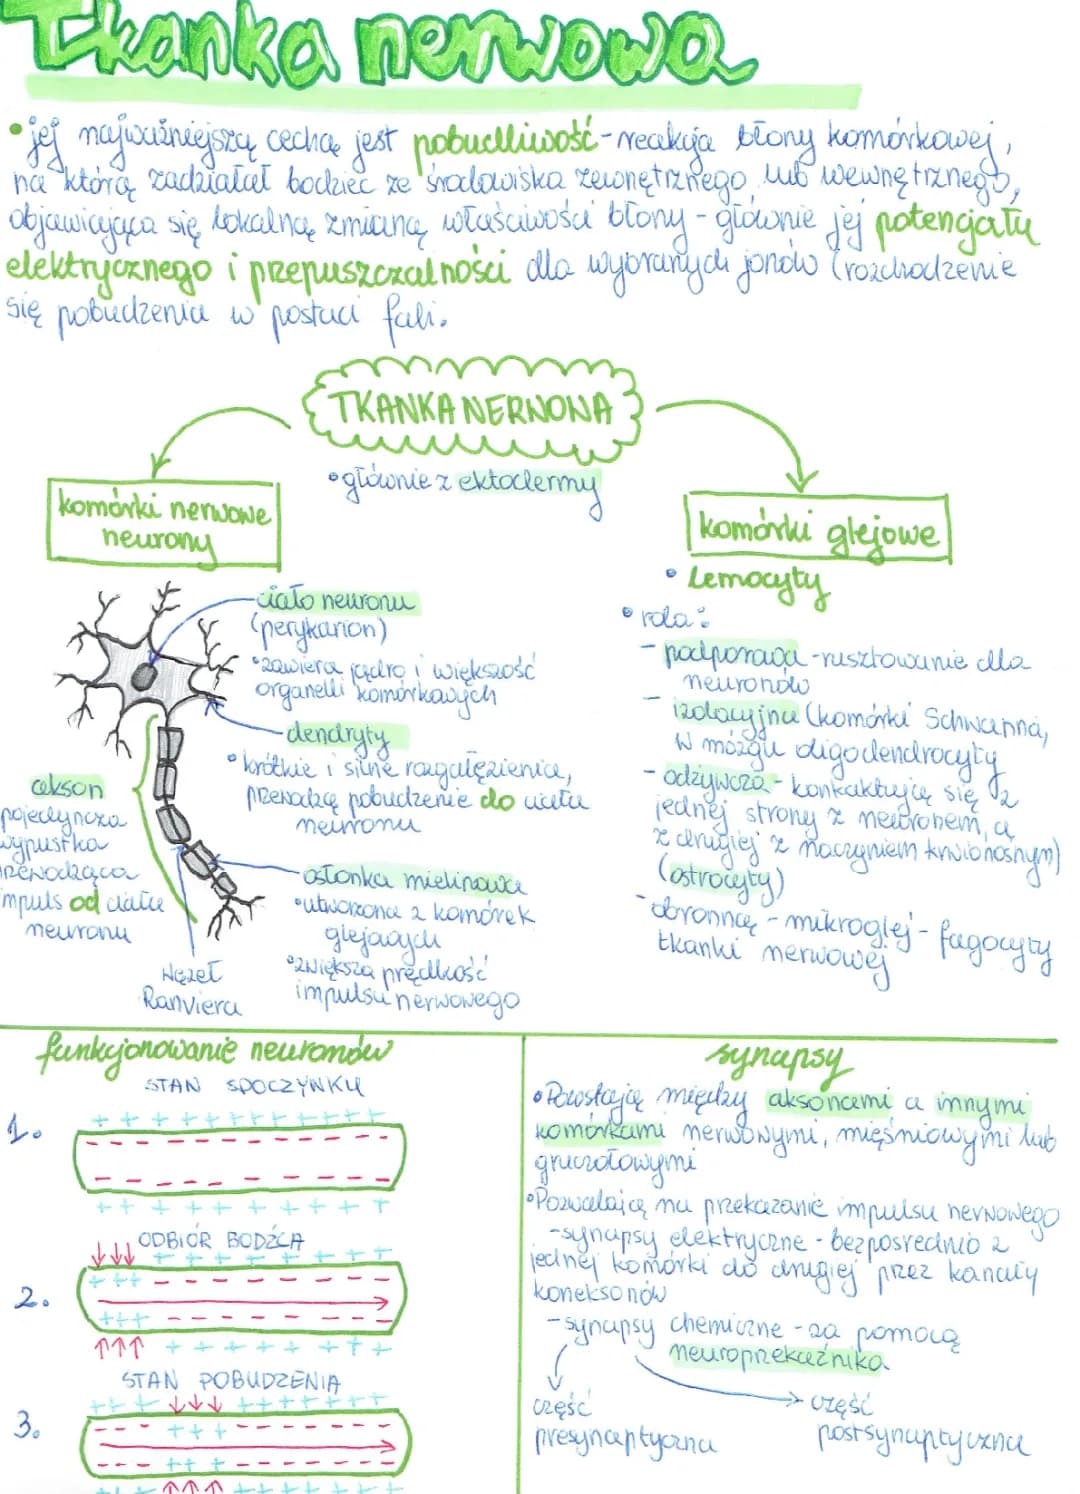 Tkanka nerwowa
• jej najważniejszą cechą jest pobudliwość - reakcja błony komórkowej,
na którą zadziałał bodziec ze środowiska zewnętrznego lub wewnętrznego,
objawiająca się lokalną zmianą właściwości błony - głównie jej potencjału
elektrycznego i przepuszczalności dla wybranych jonów (rozchodzenie
się pobudzenia w postaci fali.
TKANKA NERWOWA
• głównie z ektodermy
komórki nerwowe
neurony
ciało neuronu
(perykarion)
• zawiera jądro i większość
organelli komórkowych
dendryty
• krótkie i silne rozgałęzienia,
przewodzą pobudzenie do ciała
neuronu
akson
pojedyncza
wypustka
przewodząca
impuls od ciała
neuronu
osłonka mielinowa
• utworzona z komórek
glejowych
• zwiększa prędkość
impulsu nerwowego
Węzeł
Ranviera
komórki glejowe
• Lemocyty
• rola:
- podporowa - rusztowanie dla
neuronów
- izolacyjna (komórki Schwanna,
w mózgu oligodendrocyty
- odżywcza - kontaktują się z
jednej strony z neuronem, a
z drugiej z naczyniem krwionośnym)
(astrocyty)
- obronną - mikroglej - fagocyty
tkanki nerwowej
funkcjonowanie neuronów
STAN SPOCZYNKU
1.
ODBIÓR BODŹCA
2.
STAN POBUDZENIA
3.
synapsy
• Powstają między aksonami a innymi
komórkami nerwowymi, mięśniowymi lub
gruczołowymi
• Pozwalają na przekazanie impulsu nerwowego
- synapsy elektryczne - bezpośrednio z
jednej komórki do drugiej przez kanały
koneksonów
- synapsy chemiczne - za pomocą
neuroprzekaźnika
część
presynaptyczna
część
postsynaptyczna